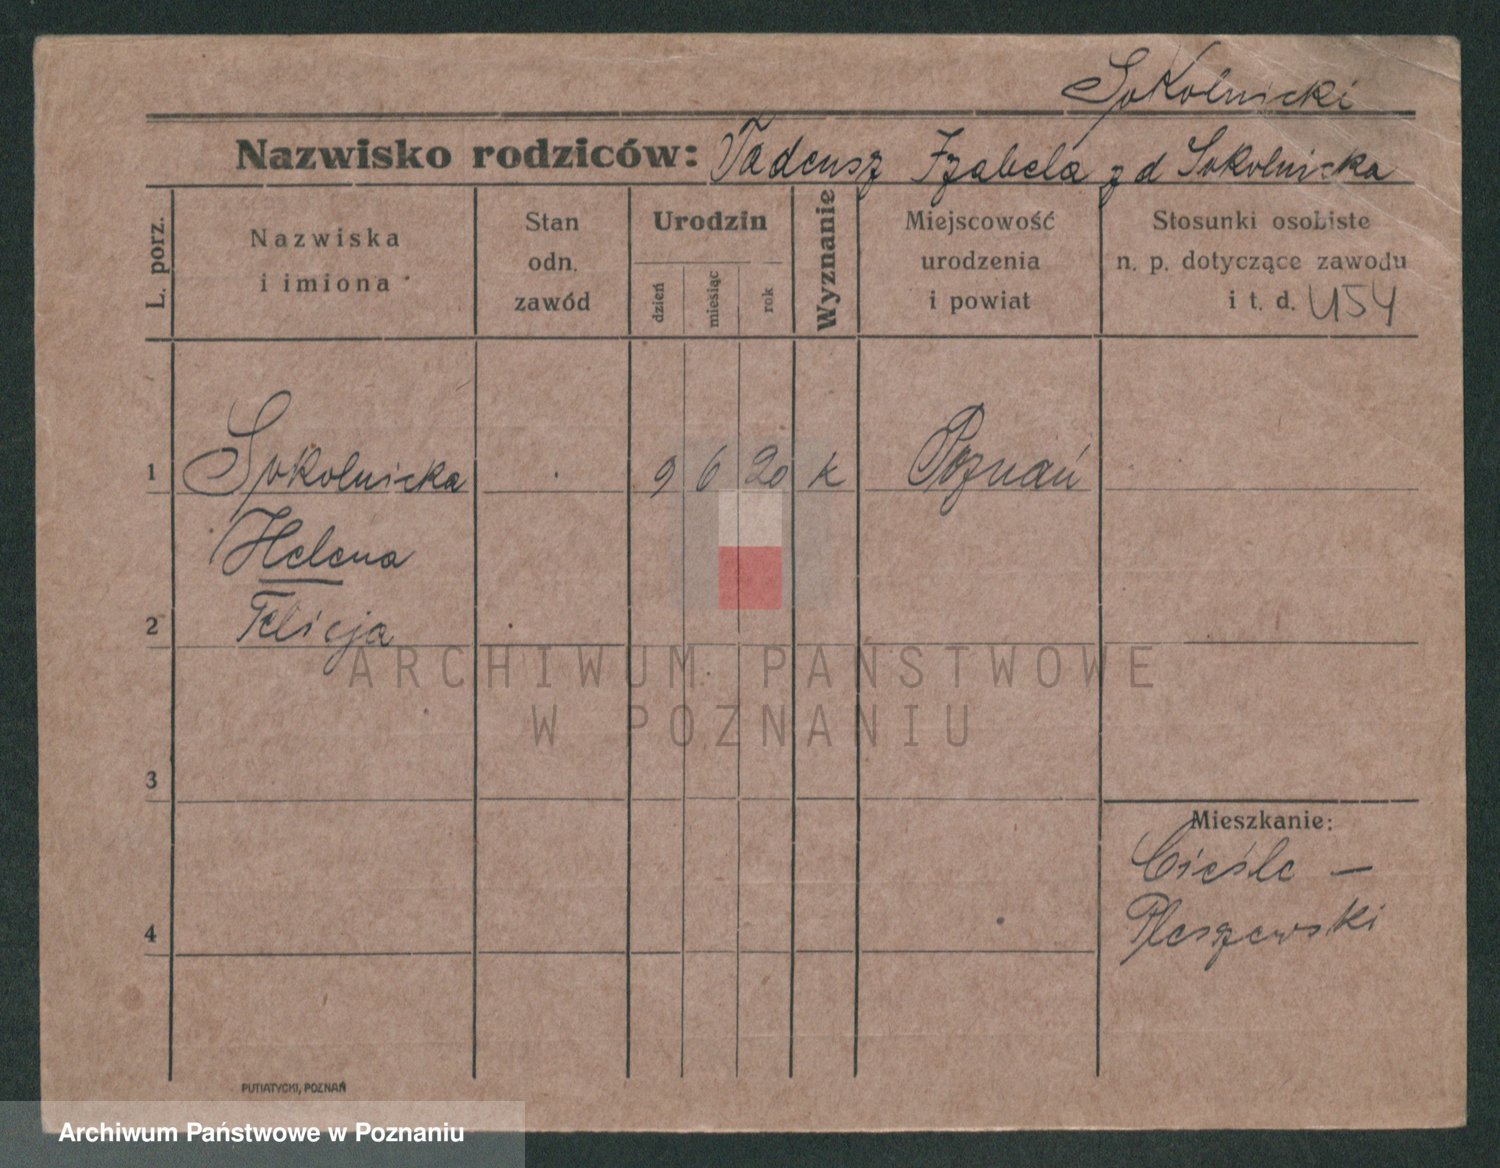 Sokolnicki
Nazwisko rodziców: Tadeusz Izabela z d Sokolnicka
L. porz.
Nazwiska
i imiona
Stan
odn.
zawód
Urodzin
dzień
miesiąc
rok
Wyznanie
Miejscowość
urodzenia
i powiat
Stosunki osobiste
n. p. dotyczące zawodu
i t. d. U54
1 Sokolnicka 9 6 20 k Poznań
Helena
2 Felicja
ARCHIWUM PAŃSTWOWE
W POZNANIU
3
Mieszkanie:
Cieśle —
Pleszewski
4
PUTIATYCKI, POZNAŃ
Archiwum Państwowe w Poznaniu